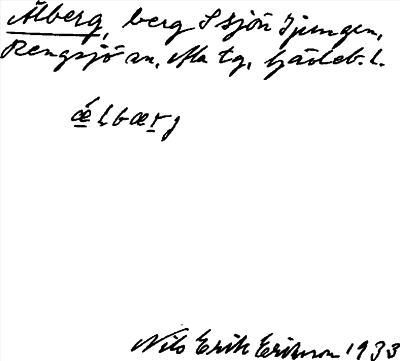 Ålberg, berg S sjön Ljungen,
Rengsjö sn, Ala tg, Gävleb. l.
ǽlbærj
Nils Erik Erikson 1933